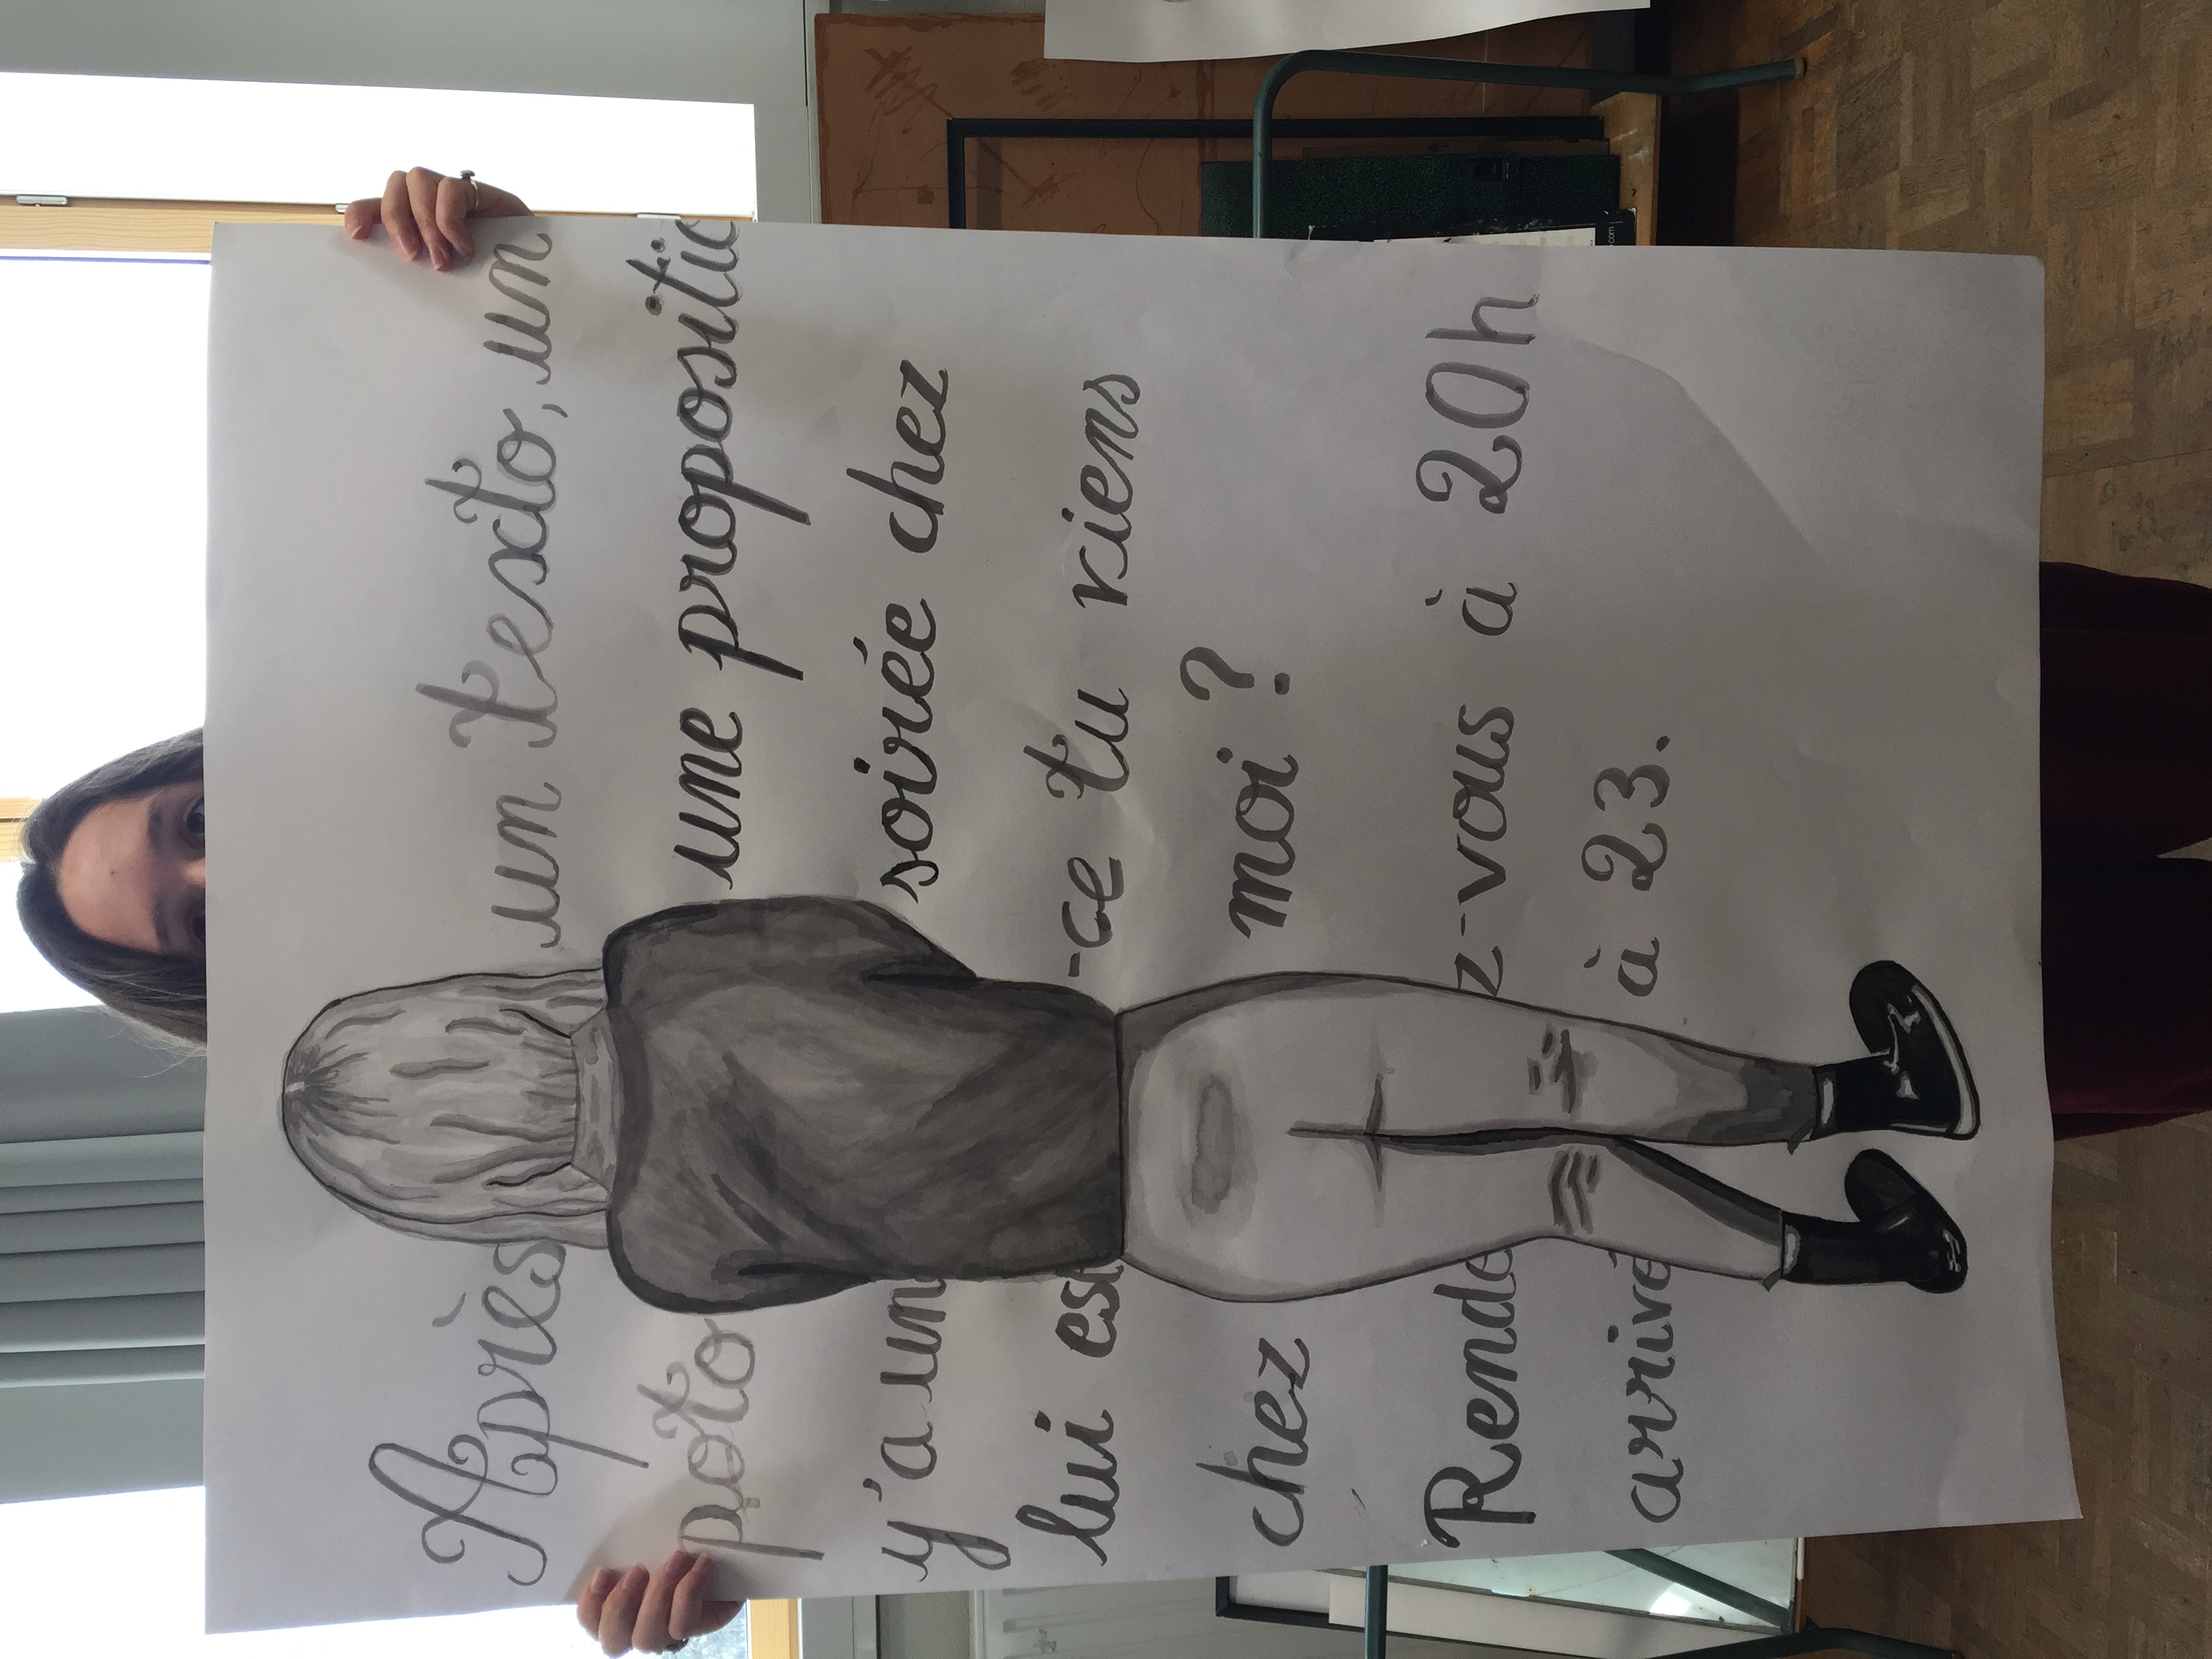 Après un texto, un
poto une propositio
y'a un soirée chez
lui est-ce tu viens
chez moi ?
Rendez-vous à 20h
arrivé à 23.
.com